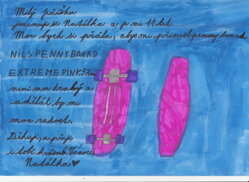 Milý Ježíšku
jmenuji se Natálka a je mi 11 let.
Moc bych si přála, abys mi přinesl penny board
NILS PENNYBOARD
EXTREME PINK
není moc drahý a
udělal by mi
moc radost.
Děkuji, a přeji
i tobě krásné Vánoce
Natálka